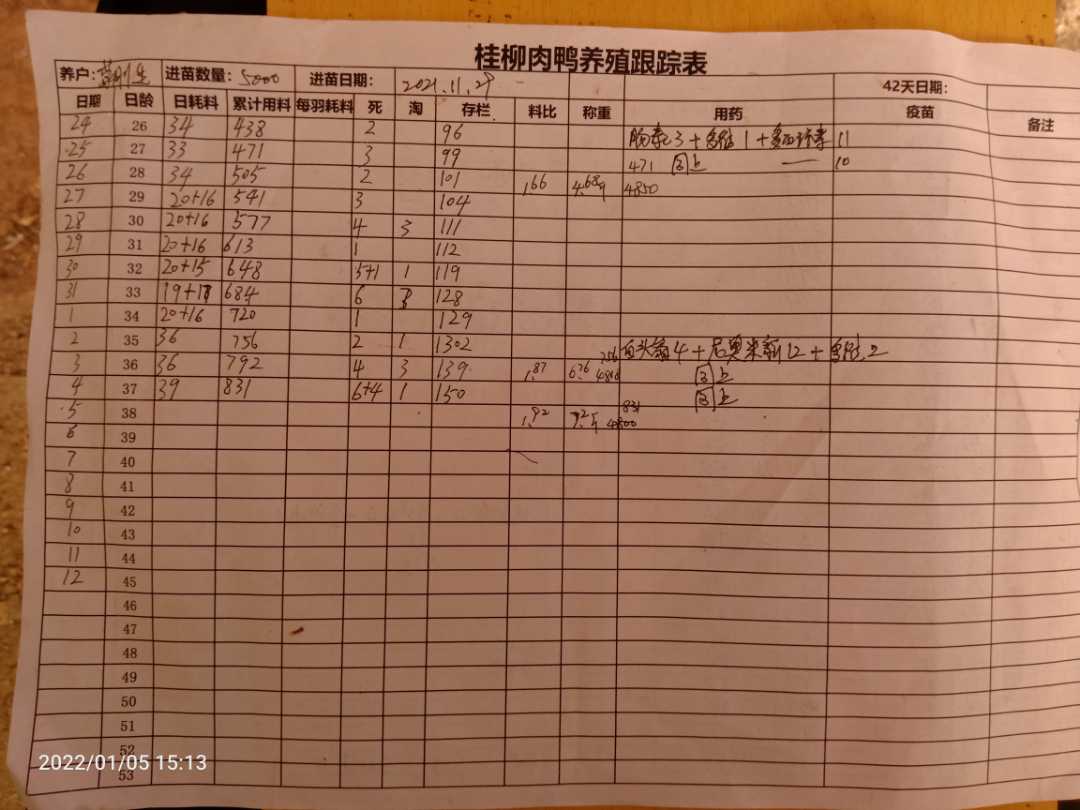 桂柳肉鸭养殖跟踪表
养户: 进苗数量: 5000 进苗日期: 2021.11.29 42天日期:
日期 日龄 日耗料 累计用料 每羽耗料 死 淘 存栏 料比 称重 用药 疫苗 备注
24 26 34 438 2 96 3 + 1 + 11
25 27 33 471 3 99 471 同上 — 10
26 28 34 505 2 101 1.66 4850
27 29 20+16 541 3 104
28 30 20+16 577 4 3 111
29 31 20+16 613 1 112
30 32 20+15 648 5+1 1 119
31 33 684 6 128
1 34 20+16 720 1 129
2 35 36 756 2 1 1302 4 + 12 + 2
3 36 36 792 4 3 139 1.87 6.76 756 同上
4 37 39 831 6+4 1 150 同上
5 38 1.92 831 4800
6 39
7 40
8 41
9 42
10 43
11 44
12 45
46
47
48
49
50
51
52
53
2022/01/05 15:13